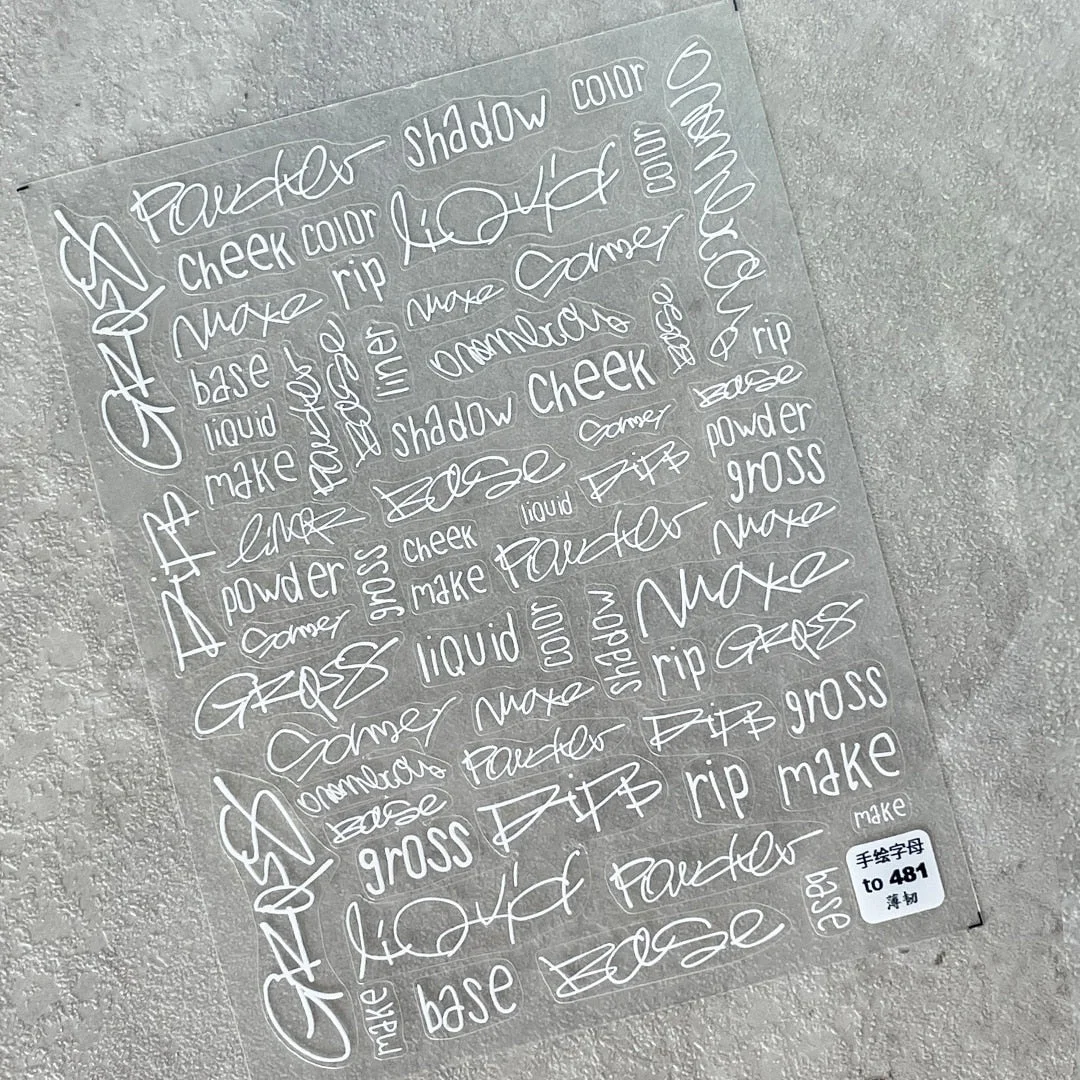 color
shadow
Powder
color
liquid
cheek
color
rip
Gross
make
Gomer
make
onomerous
onomerous
liner
base
Powder
Base
rip
cheek
Base
shadow
liquid
Gomer
powder
make
Base
gross
liquid
liner
cheek
Powder
make
powder
gross
make
make
Gomer
liquid
color
shadow
rip
Gross
Gross
Gomer
make
gross
Powder
onomerous
Base
rip
make
make
gross
Gross
liquid
Powder
base
Base
base
make
手绘字母
to 481
薄韧